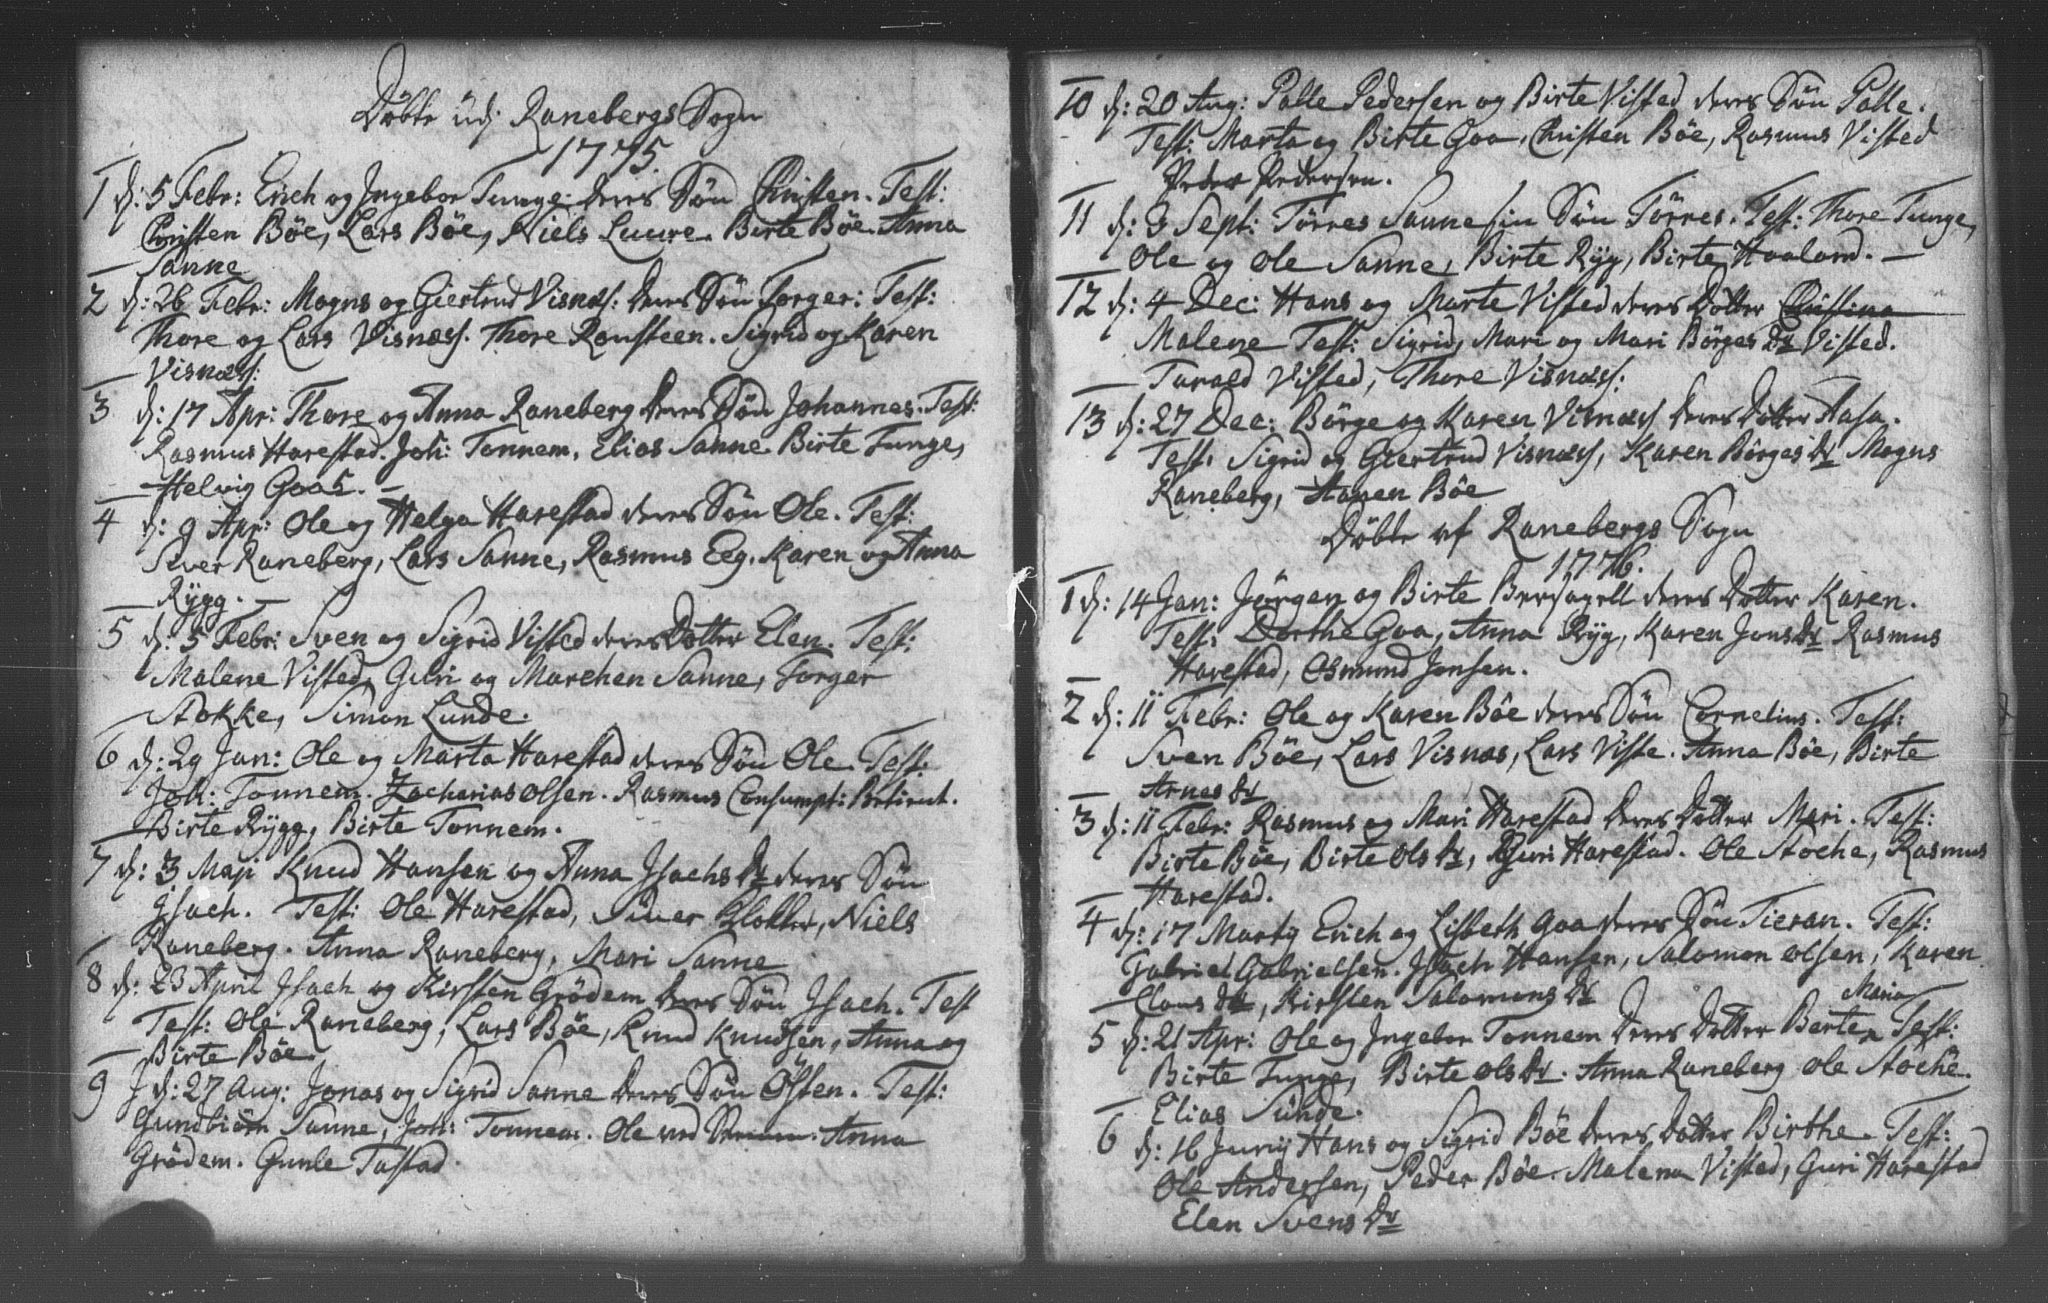 Döbte udj Ranebergs Sogn
1775.
1 d: 5 Febr: Erich og Ingebor Tunge deres Sön Christen. Test:
Christen Böe, Lars Böe, Niels Luure. Birte Böe. Anna
Sanne
2 d: 26 Febr: Mogns og Giertrud Visnæs: deres Sön Torger: Test:
Thore og Lars Visnæss. Thore Ronsteen. Sigrid og Karen
Visnæss:
3 d: 17 Apr: Thore og Anna Raneberg deres Sön Johannes. Test:
Rasmus Harestad. Joh: Tonnem, Elias Sanne. Birte Tunge,
Helvig Goas. –
4 d: 9 Apr: Ole og Helga Harestad deres Sön Ole. Test:
Siver Raneberg, Lars Sanne, Rasmus Eeg. Karen og Anna
Rygg. –
5 d: 5 Febr: Sven og Sigrid Visted deres Dotter Elen. Test:
Malene Visted, Guri og Marchen Sanne, Torger
Stokke, Simon Lunde.
6 d: 29 Jan: Ole og Marta Harestad deres Sön Ole. Test:
Joh: Tonnem. Zacharias Olsen. Rasmus Consumpt: Betient.
Birte Rygg, Birte Tonnem.
7 d: 3 Maji Knud Hansen og Anna Isachs Dr deres Sön
Isach. Test: Ole Harestad, Siver Klokker, Niels
Raneberg. Anna Raneberg, Mari Sanne
8 d: 23 April Isach og Kirsten Grödem deres Sön Isach. Test
Test: Ole Raneberg, Lars Böe, Knud Knudsen, Anna og
Birte Böe.
9 d: 27 Aug: Jonas og Sigrid Sanne deres Sön Östen. Test:
Gundbiörn Sanne, Joh: Tonnem. Ole ved Anna
Grödem. Gunle Tastad.
10 d: 20 Aug: Palle Pedersen og Birte Visted deres Sön Palle.
Test: Marta og Birte Goa, Christen Böe, Rasmus Visted
Peder Pedersen.
11 d: 3 Sept: Törres Sanne sin Sön Törres. Test: Thore Tunge,
Ole og Ole Sanne, Birte Ryg, Birte Haaland. –
12 d: 4 Dec: Hans og Marte Visted deres Dotter Christina
Malene Test: Sigrid, Mari og Mari Börges Dr Visted.
Tarald Visted, Thore Visnæss:
13 d: 27 Dec: Börge og Karen Visnæss deres Dotter Aasa.
Test: Sigrid og Giertrud Visnæss, Karen Börges Dr Mogns
Raneberg, Hanen Böe
Döbte af Ranebergs Sogn
1776.
1 d: 14 Jan: Jörgen og Birte Bersagell deres Dotter Karen.
Test: Dorthe Goa, Anna Ryg, Karen Jons Dr Rasmus
Harestad, Osmund Jonsen.
2 d: 11 Febr: Ole og Karen Böe deres Sön Cornelius. Test:
Sven Böe, Lars Visnæs, Lars Viste. Anna Böe, Birte
Arnes Dr
3 d: 11 Febr: Rasmus og Mari Harestad deres Dotter Mari. Test:
Birte Böe, Birte Ols Dr, Guri Harestad. Ole Stoche, Rasmus
Harestad.
4 d: 17 Martij Erich og Lisbeth Goa deres Sön Tieran. Test:
Gabriel Gabrielsen. Isach Hansen, Salomon Olsen, Karen
Claus Dr, Kirsten Salomons Dr
Maria
5 d: 21 Apr: Ole og Ingebor Tonnem deres Dotter Berte Test:
Birte Tunge, Birte Ols Dr. Anna Raneberg Ole Stoche.
Elias Sunde.
6 d: 16 Junij Hans og Sigrid Böe deres Dotter Birthe. Test:
Ole Andersen, Peder Böe. Malena Visted, Guri Harestad
Elen Svens Dr